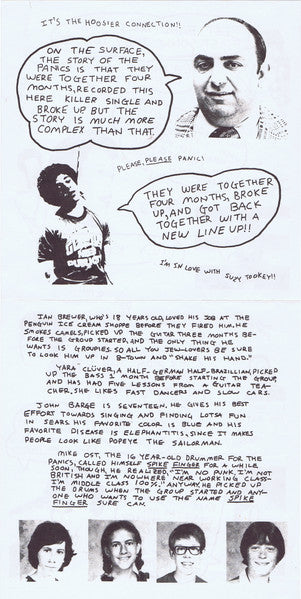 IT'S THE HOOSIER CONNECTION!!
ON THE SURFACE,
THE STORY OF THE
PANICS IS THAT THEY
WERE TOGETHER FOUR
MONTHS, RECORDED THIS
HERE KILLER SINGLE AND
BROKE UP BUT THE
STORY IS MUCH MORE
COMPLEX THAN THAT.
PLEASE, PLEASE PANIC!
THEY WERE TOGETHER
FOUR MONTHS, BROKE
UP, AND GOT BACK
TOGETHER WITH A
NEW LINE UP!!
I'M IN LOVE WITH
SUZY TOOKEY!!
IAN BREWER, WHO'S 18 YEARS OLD, LOVED HIS JOB AT THE
PENGUIN ICE CREAM SHOPPE BEFORE THEY FIRED HIM. HE
SMOKES CAMELS, PICKED UP THE GUITAR THREE MONTHS BE-
FORE THE GROUP STARTED, AND THE ONLY THING HE
WANTS IS GROUPIES. SO ALL YOU TEEN-LOVERS BE SURE
TO LOOK HIM UP IN B-TOWN AND "SHAKE HIS HAND."
YARA CLÜVER, A HALF-GERMAN HALF-BRAZILLIAN, PICKED
UP THE BASS A MONTH BEFORE STARTING THE GROUP,
AND HAS HAD FIVE LESSONS FROM A GUITAR TEA-
CHER. SHE LIKES FAST DANCERS AND SLOW CARS.
JOHN BARGE IS SEVENTEEN. HE GIVES HIS BEST
EFFORT TOWARDS SINGING AND FINDING LOTSA FUN
IN SEARS. HIS FAVORITE COLOR IS BLUE AND HIS
FAVORITE DISEASE IS ELEPHANTITIS, SINCE IT MAKES
PEOPLE LOOK LIKE POPEYE THE SAILORMAN.
MIKE OST, THE 16 YEAR-OLD DRUMMER FOR THE
PANICS, CALLED HIMSELF SPIKE FINGER FOR A WHILE.
SOON, THOUGH, HE REALIZED, "I'M NO PUNK, I'M NOT
BRITISH AND I'M NOWHERE NEAR WORKING CLASS—
I'M MIDDLE CLASS 100%." ANYWAY, HE PICKED UP
THE DRUMS WHEN THE GROUP STARTED AND ANY-
ONE WHO WANTS TO USE THE NAME SPIKE
FINGER SURE CAN.